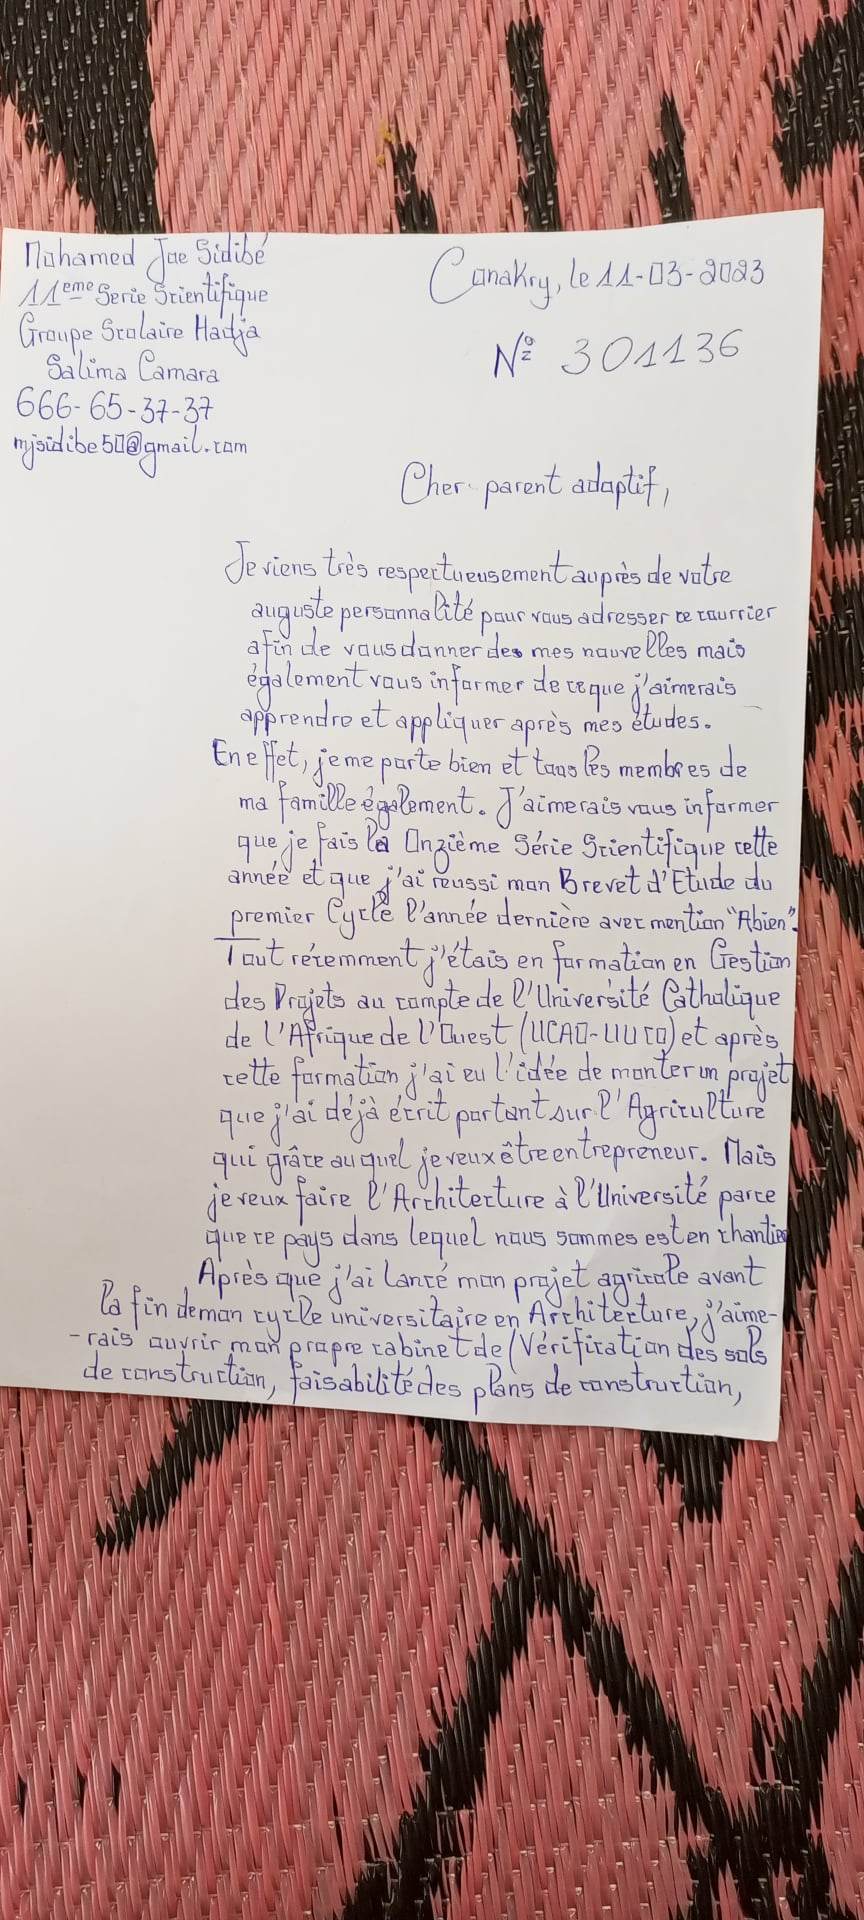 Mohamed Joe Sidibé
11eme Serie Scientifique
Groupe Scolaire Hadja
Salima Camara
666-65-37-37
mjsidibe50@gmail.com
Conakry, le 11-03-2023
Nº 301136
Cher parent adoptif,
Je viens très respectueusement auprès de votre
auguste personnalité pour vous adresser ce courrier
afin de vous donner des mes nouvelles mais
également vous informer de ce que j'aimerais
apprendre et appliquer après mes études.
En effet, je me porte bien et tous les membres de
ma famille également. J'aimerais vous informer
que je fais la Onzième Série Scientifique cette
année et que j'ai reussi mon Brevet d'Etude du
premier Cycle l'année dernière avec mention "Abien".
Tout récemment j'étais en formation en Gestion
des Projets au compte de l'Université Catholique
de l'Afrique de l'Ouest (UCAO-UUCO) et après
cette formation j'ai eu l'idée de monter un projet
que j'ai déjà écrit portant sur l'Agriculture
qui grâce auquel je veux être entrepreneur. Mais
je veux faire l'Architecture à l'Université parce
que ce pays dans lequel nous sommes est en chantier
Après que j'ai lancé mon projet agricole avant
la fin de mon cycle universitaire en Architecture, j'aime-
-rais ouvrir mon propre cabinet de (Vérification des sols
de construction, faisabilité des plans de construction,